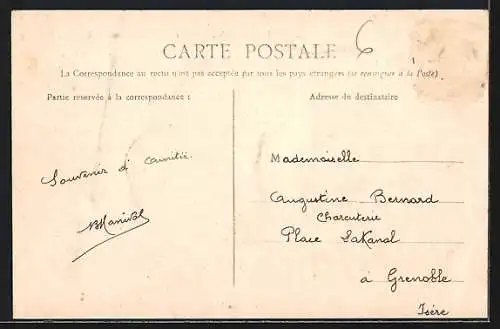 6
CARTE POSTALE
La Correspondance au recto n'est pas acceptée par tous les pays étrangers (se renseigner à la Poste)
Partie reservée à la correspondance :
Adresse du destinataire
Souvenir d'amitié
Mademoiselle
Augustine Bernard
Charcuterie
Place Lakanal
à Grenoble
Isère